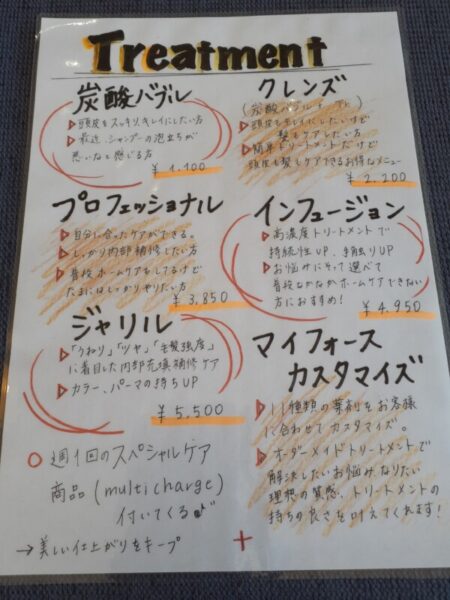 Treatment
炭酸バブル
▷頭皮をスッキリ、キレイにしたい方
▷最近、シャンプーの泡立ちが
悪いなと感じる方
¥1,100
クレンズ
▷頭皮もキレイにしたいけど
髪もケアしたい方
▷簡単トリートメントだけど
頭皮も髪もケアできるお得なメニュー
¥2,200
プロフェッショナル
▷自分に合ったケアができる。
▷しっかり内部補修したい方
▷普段ホームケアもしてるけど
たまにはしっかりやりたい方
¥3,850
インフュージョン
▷高濃度トリートメントで
持続性UP、手触りUP
▷お悩みにそって選べて
普段なかなかホームケアできない
方におすすめ!
¥4,950
ジャリル
▷「うねり」「ツヤ」「毛髪強度」
に着目した内部充填補修ケア
▷カラー、パーマの持ちUP
¥5,500
○週1回のスペシャルケア
商品(multicharge)
付いてくる♪
→美しい仕上がりをキープ
マイフォース
カスタマイズ
▷11種類の薬剤をお客様
に合わせてカスタマイズ。
▷オーダーメイドトリートメントで
解決したいお悩みなりたい
理想の質感、トリートメントの
持ちの良さを叶えてくれます!
+